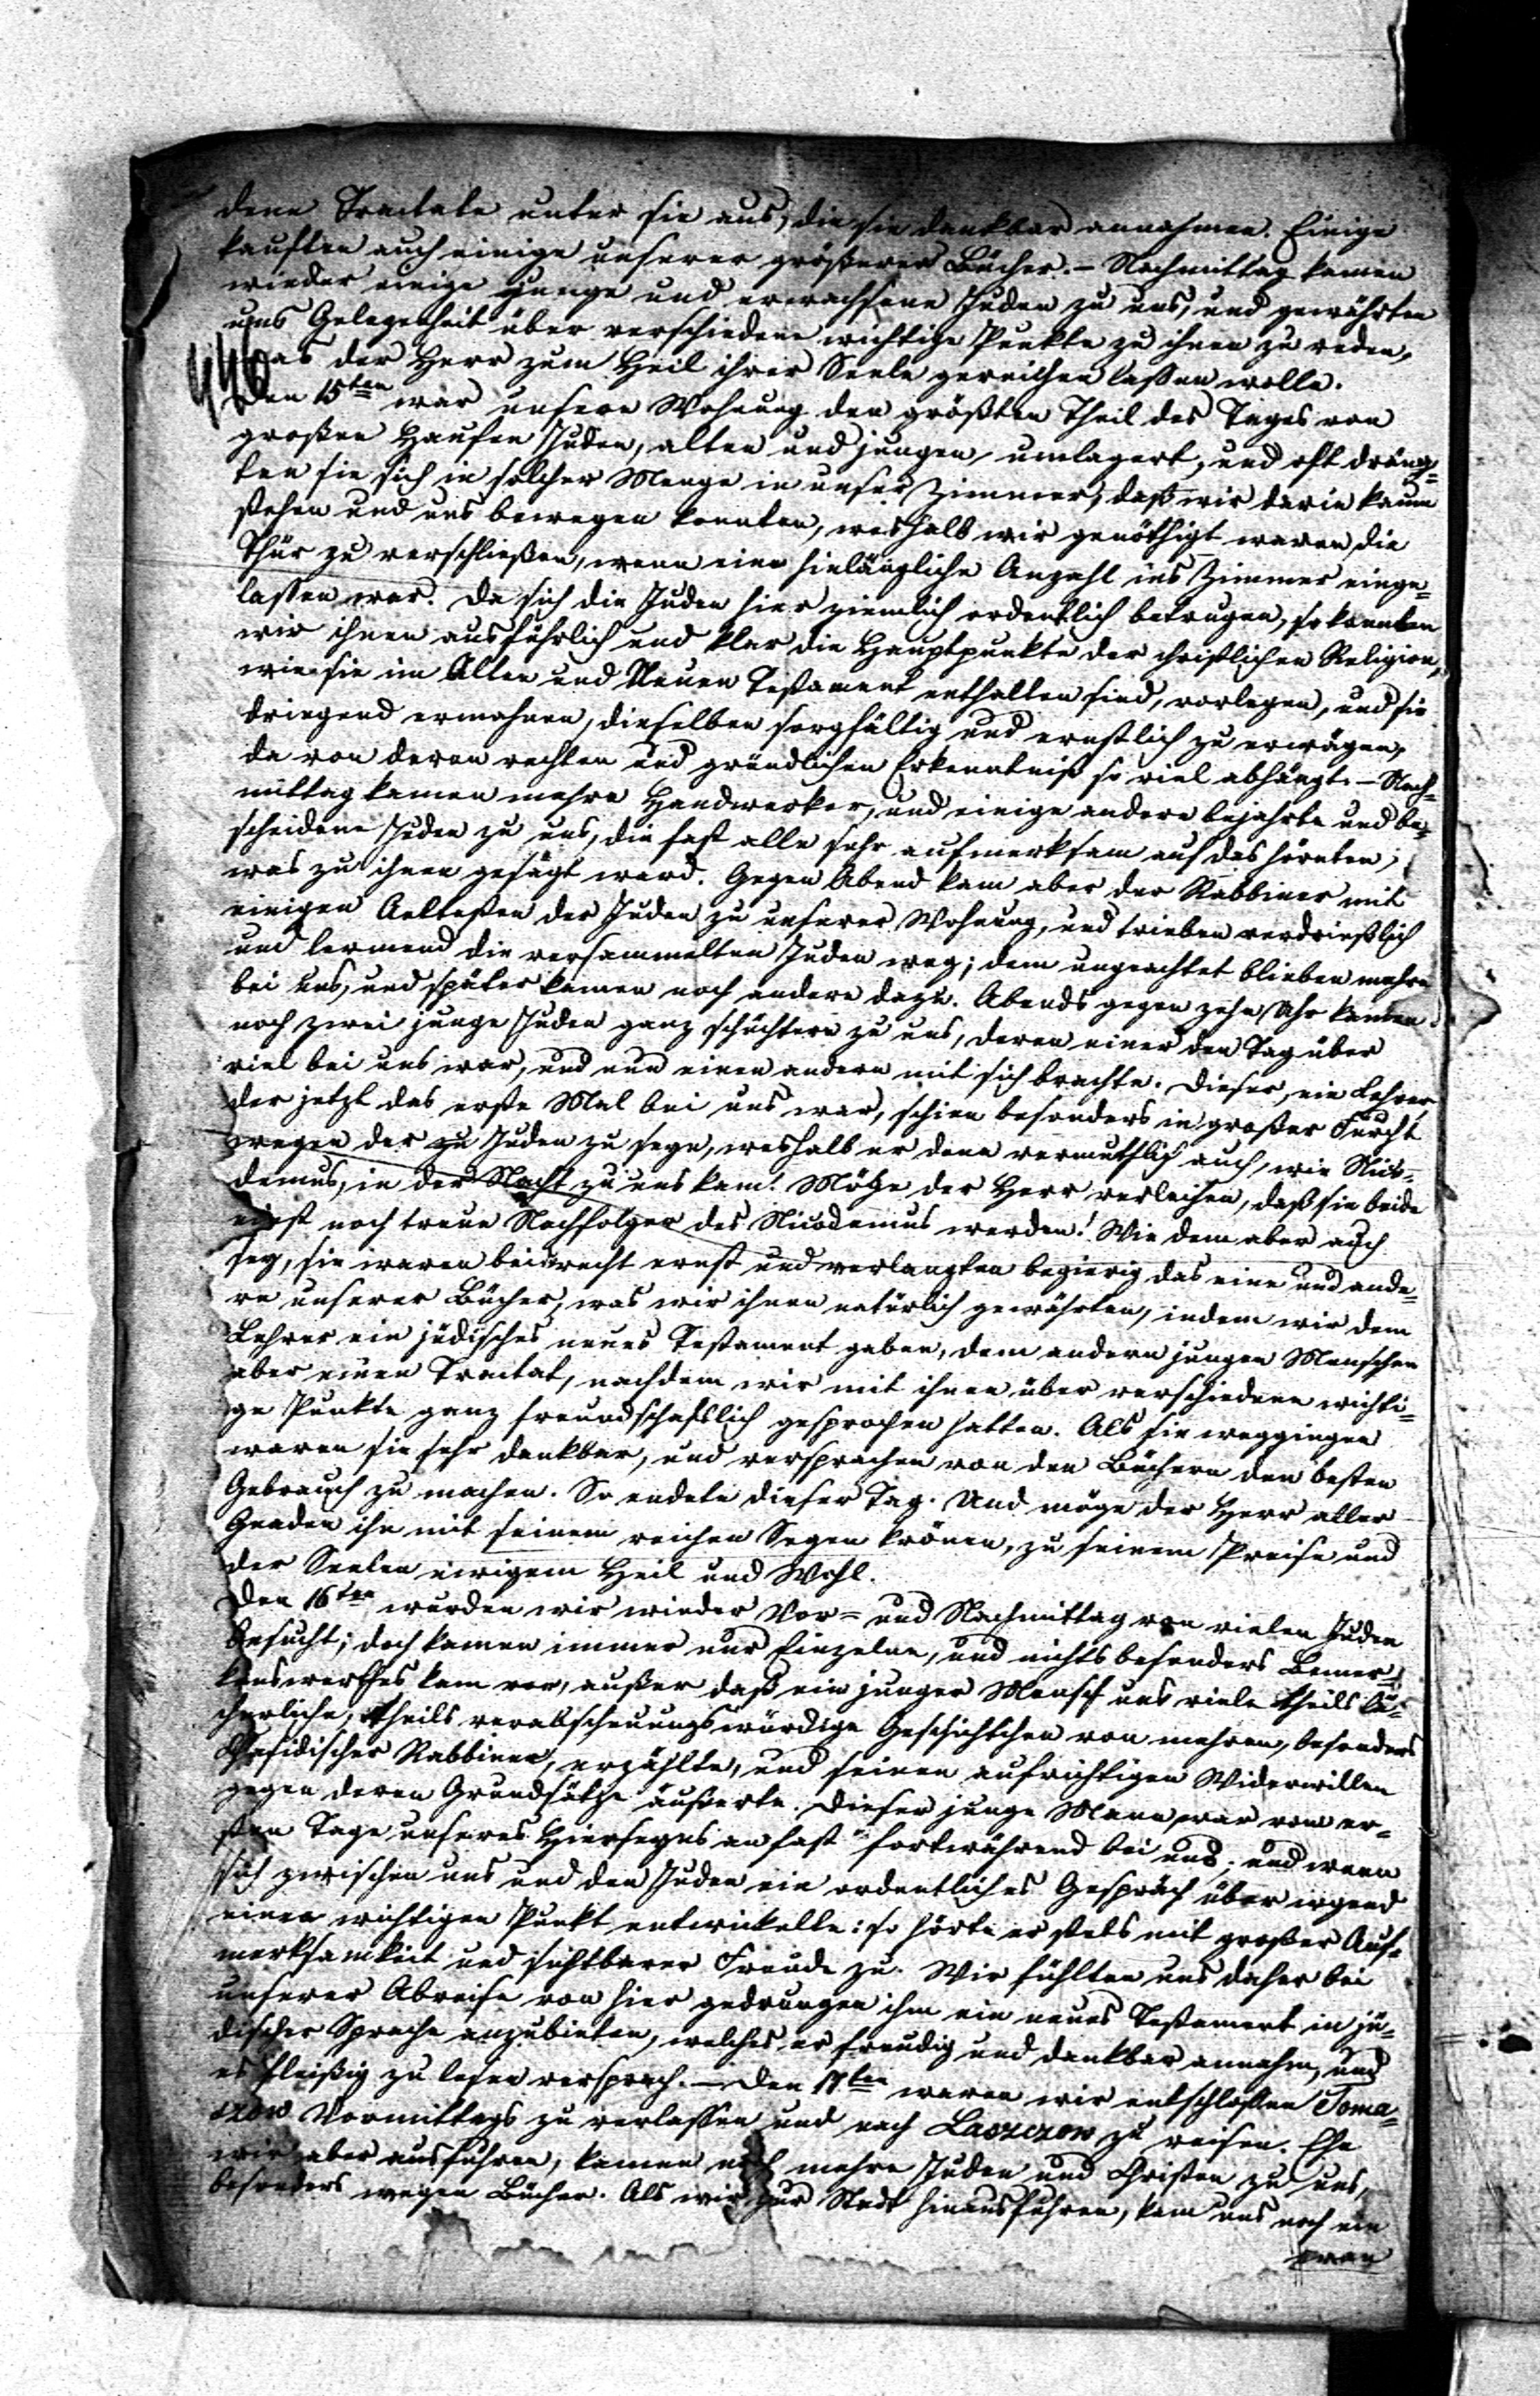 dene Tractate unter sie aus, die sie dankbar annahmen. Einige
kauften auch einige unserer größeren Bücher. – Nachmittag kamen
wieder einige junge und erwachsene Juden zu uns, und gewährten
uns Gelegenheit über verschiedene wichtige Punkte zu ihnen zu reden,
was der Herr zum Heil ihrer Seele gereichen lassen wolle.
446
Den 15ten war unsere Wohnung den größten Theil des Tages von
großen Haufen Juden, alten und jungen, umlagert, und oft dräng=
ten sie sich in solcher Menge in unser Zimmer, daß wir darin kaum
stehen und uns bewegen konnten, weshalb wir genöthigt waren die
Thür zu verschließen, wenn eine hinlängliche Anzahl ins Zimmer einge=
lassen war. Da sich die Juden hier ziemlich ordentlich betrugen, so konnten
wir ihnen ausführlich und klar die Hauptpunkte der christlichen Religion,
wie sie im Alten und Neuen Testament enthalten sind, vorlegen, und sie
dringend ermahnen, dieselben sorgfältig und ernstlich zu erwägen,
da von deren rechten und gründlichen Erkenntniß so viel abhängt. – Nach=
mittag kamen mehre Handwerker, und einige andere bejahrte und be=
scheidene Juden zu uns, die fast alle sehr aufmerksam auf das hörten,
was zu ihnen gesagt ward. Gegen Abend kam aber der Rabbiner mit
einigen Aeltesten der Juden zu unserer Wohnung, und trieben verdrießlich
und lermend die versammelten Juden weg; dem ungeachtet blieben mehre
bei uns, und später kamen noch andere dazu. Abends gegen zehn Uhr kamen
noch zwei junge Juden ganz schüchtern zu uns, deren einer den Tag über
viel bei uns war, und nun einen andern mit sich brachte. Dieser, ein Lehrer,
der jetzt das erste Mal bei uns war, schien besonders in großer Furcht
wegen der zu Juden zu seyn, weshalb er denn vermuthlich auch, wie Nico=
demus, in der Nacht zu uns kam. Möge der Herr verleihen, daß sie beide
einst noch treue Nachfolger des Nicodemus werden! Wie dem aber auch
sey, sie waren beide recht ernst und verlangten begierig das eine und ande=
re unserer Bücher, was wir ihnen natürlich gewährten, indem wir dem
Lehrer ein jüdisches neues Testament gaben, dem andern jungen Menschen
aber einen Tractat, nachdem wir mit ihnen über verschiedene wichti=
ge Punkte ganz freundschaftlich gesprochen hatten. Als sie weggingen
waren sie sehr dankbar, und versprachen von den Büchern den besten
Gebrauch zu machen. So endete dieser Tag. Und möge der Herr aller
Gnaden ihn mit seinem reichen Segen krönen, zu seinem Preise und
der Seelen ewigem Heil und Wohl.
Den 16ten wurden wir wieder Vor= und Nachmittag von vielen Juden
besucht; doch kamen immer nur Einzelne, und nichts besonders Bemer=
kenswerthes kam vor, außer daß ein junger Mensch uns viele theils lä=
cherliche, theils verabscheuungswürdige Geschichtchen von mehren, besonders
Chasidischer Rabbiner, erzählte, und seinen aufrichtigen Widerwillen
gegen deren Grundsätze äußerte. Dieser junge Mann war vom er=
sten Tage unseres Hierseyns an fast fortwährend bei uns; und wenn
sich zwischen uns und den Juden ein ordentliches Gespräch über irgend
einen wichtigen Punkt entwickelte: so hörte er stets mit großer Auf=
merksamkeit und sichtbarer Freude zu. Wir fühlten uns daher bei
unserer Abreise von hier gedrungen ihm ein neues Testament in jü=
discher Sprache anzubieten, welches er freudig und dankbar annahm, und
es fleißig zu lesen versprach. – Den 17ten waren wir entschlossen Toma=
szow Vormittags zu verlassen und nach Laszczow zu reisen. Ehe
wir aber ausfuhren, kamen noch mehre Juden und Christen zu uns,
besonders wegen Bücher. Als wir zur Stadt hinausfuhren, kam uns noch ein